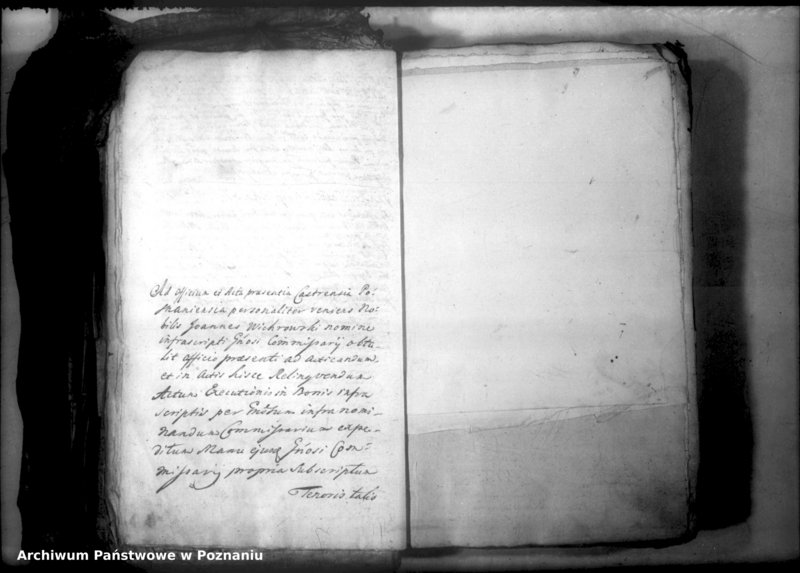 Ad officium et Acta præsentia Castrensia Po-
snaniensia personaliter veniens No-
bilis Joannes Wichrowski nomine
infrascripti Gñosi Commissarij obtu-
lit officio præsenti ad acticandum
et in Actis hisce Relinqvendum
Actum Executionis in Bonis infra
scriptis per Gñosum infra nomi-
nandum Commissarium expe-
ditum Manu ejusq Gñosi Com-
missarij propria Subscriptum
Tenoris talis
Archiwum Państwowe w Poznaniu